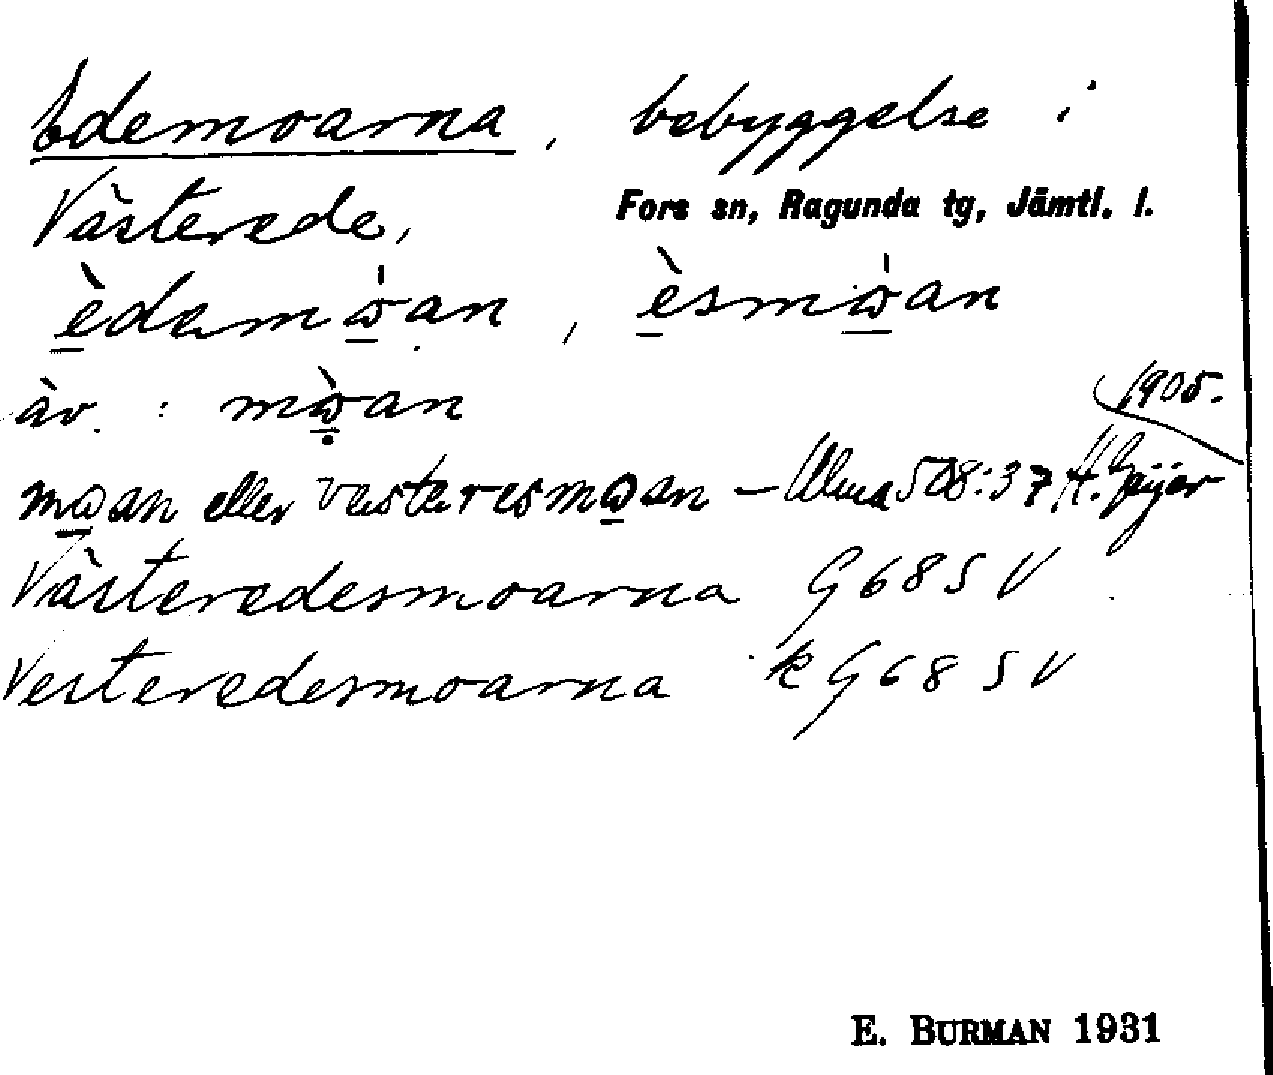 Edemoarna, bebyggelse i
Västerede, Fors sn, Ragunda tg, Jämtl. l.
èdamὼan, èsmὼan
äv.: mὼan
1905.
mωan eller vesteresmωan – Ulma 508:37 H. Geijer
Västeredesmoarna G 68 S V
Vesteredesmoarna k G 68 S V
E. BURMAN 1931